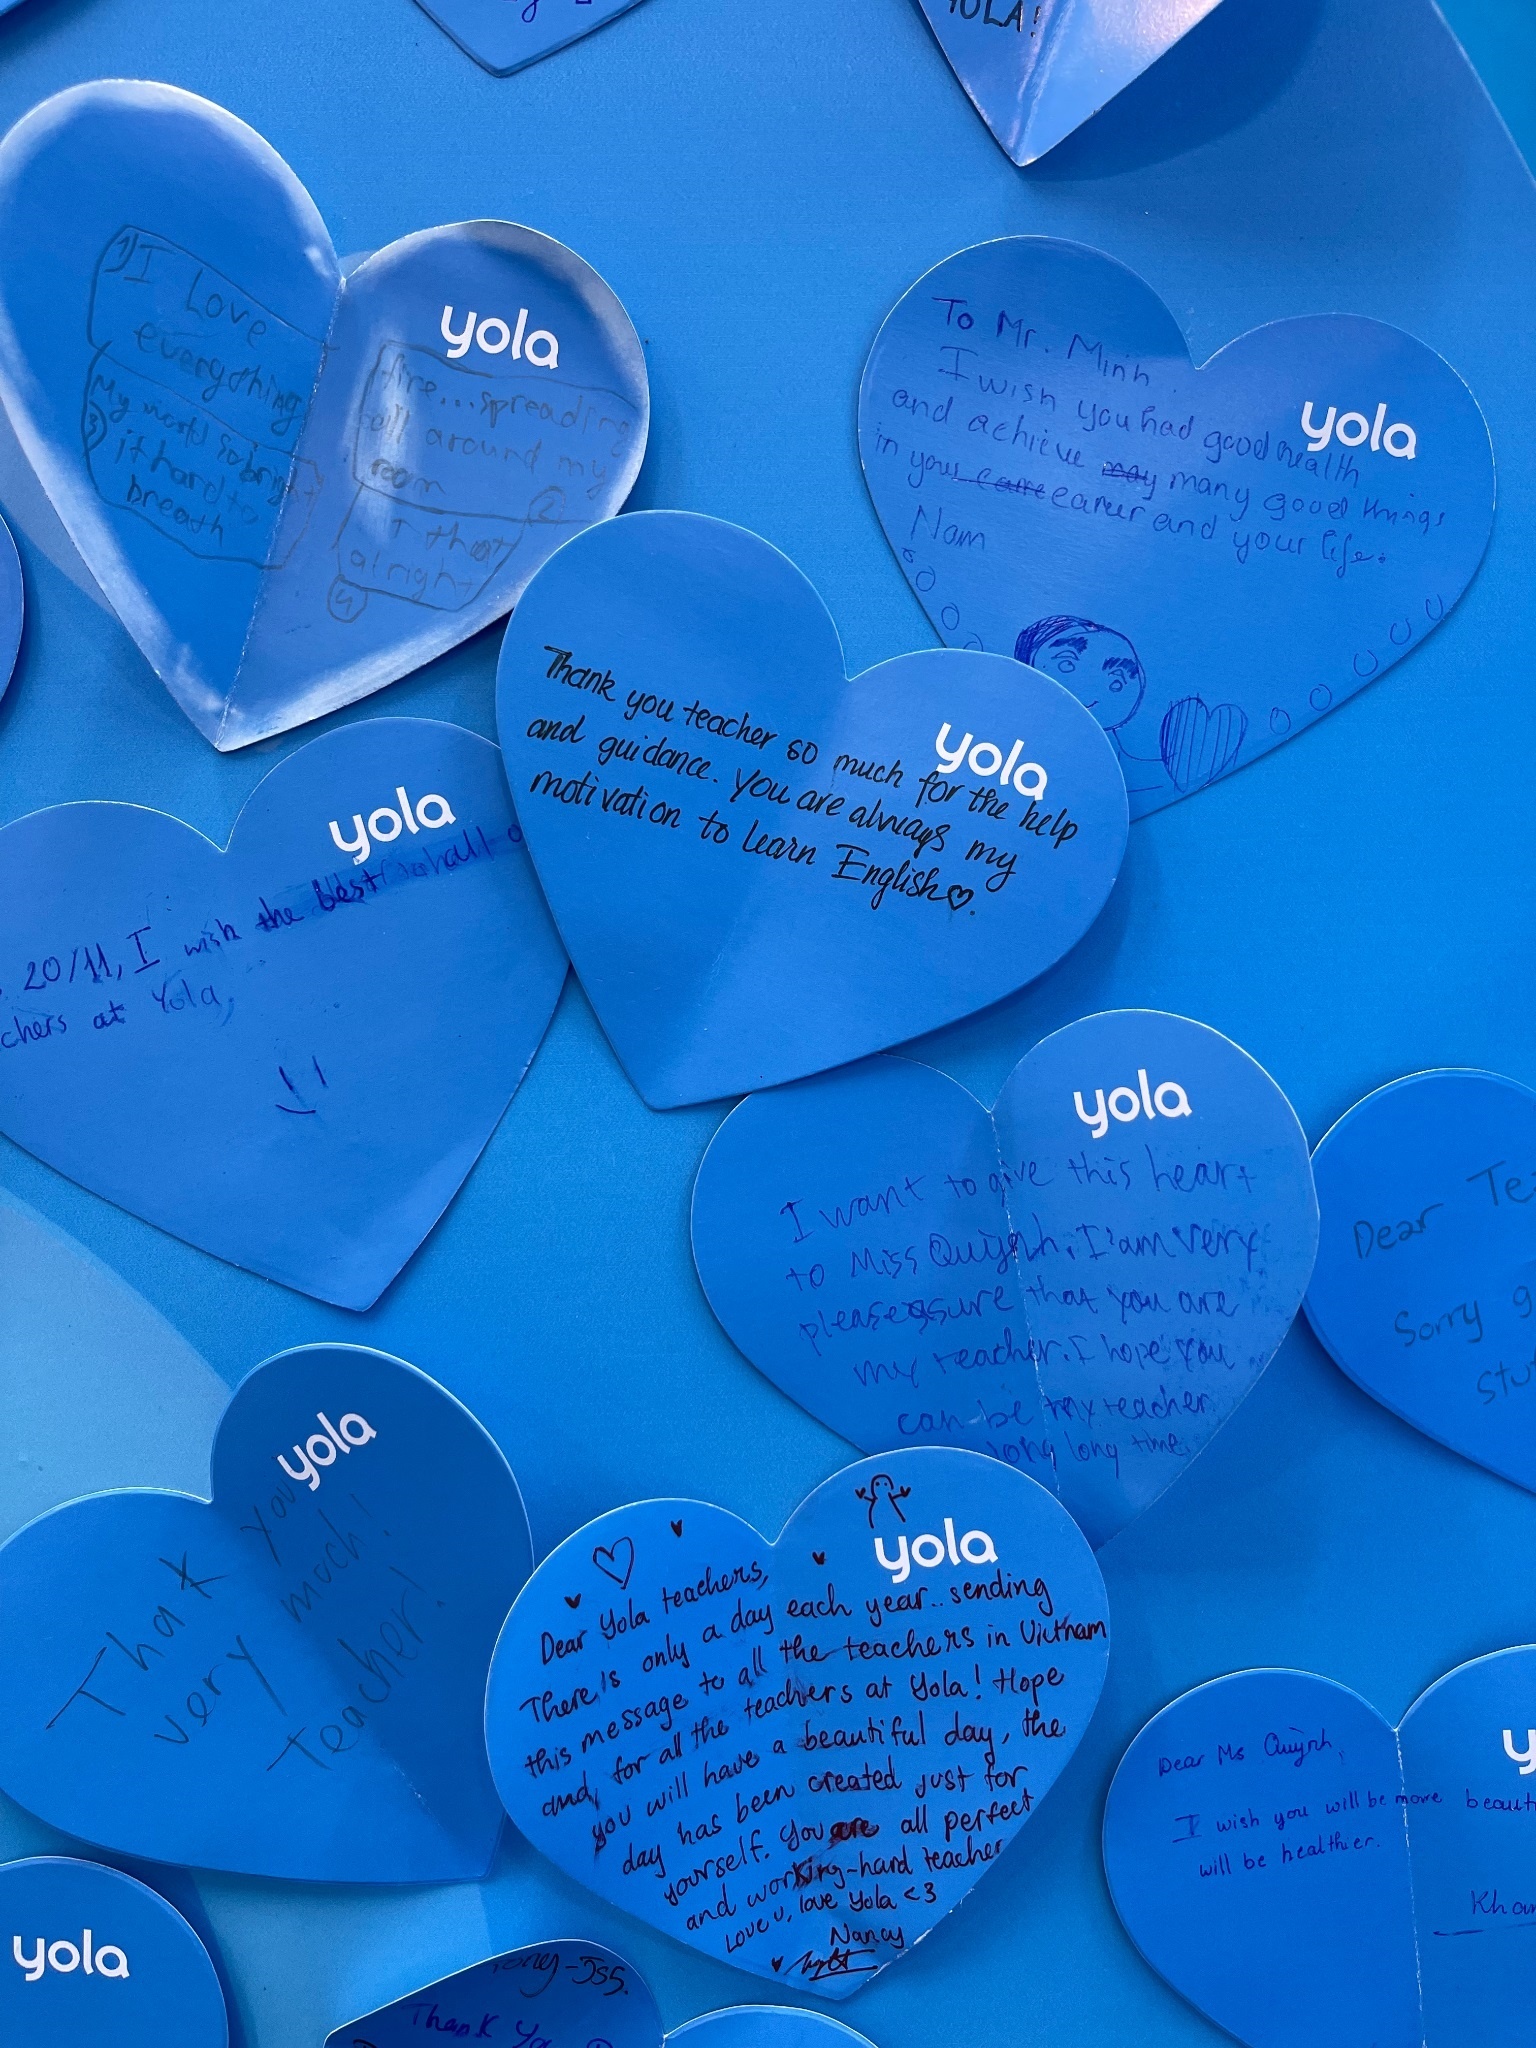 YOLA!
1) I Love
everything
My world so bright
3 it hard to
breath
yola
fire...spreading
all around my
room
2
alright
4
To Mr. Minh
I wish you had good health
and achieve may many good things
in your carre career and your life.
Nam
yola
Thank you teacher so much for the help
and guidance. You are always my
motivation to learn English♡.
yola
yola
20/11, I wish the best
chers at Yola,
yola
I want to give this heart
to Miss Quỳnh. I'am very
that you are
my teacher. I hope you
can be my teacher
long long time
Dear
Sorry
yola
Thak you
very much!
teacher!
yola
Dear Yola teachers,
There is only a day each year.. sending
this message to all the teachers in Vietnam
and, for all the teachers at Yola! Hope
you will have a beautiful day, the
day has been created just for
yourself. You are all perfect
and working-hard teacher
Love u, love Yola <3
Nancy
Dear Ms Quỳnh,
I wish you will be more
will be healthier.
yola
Thank